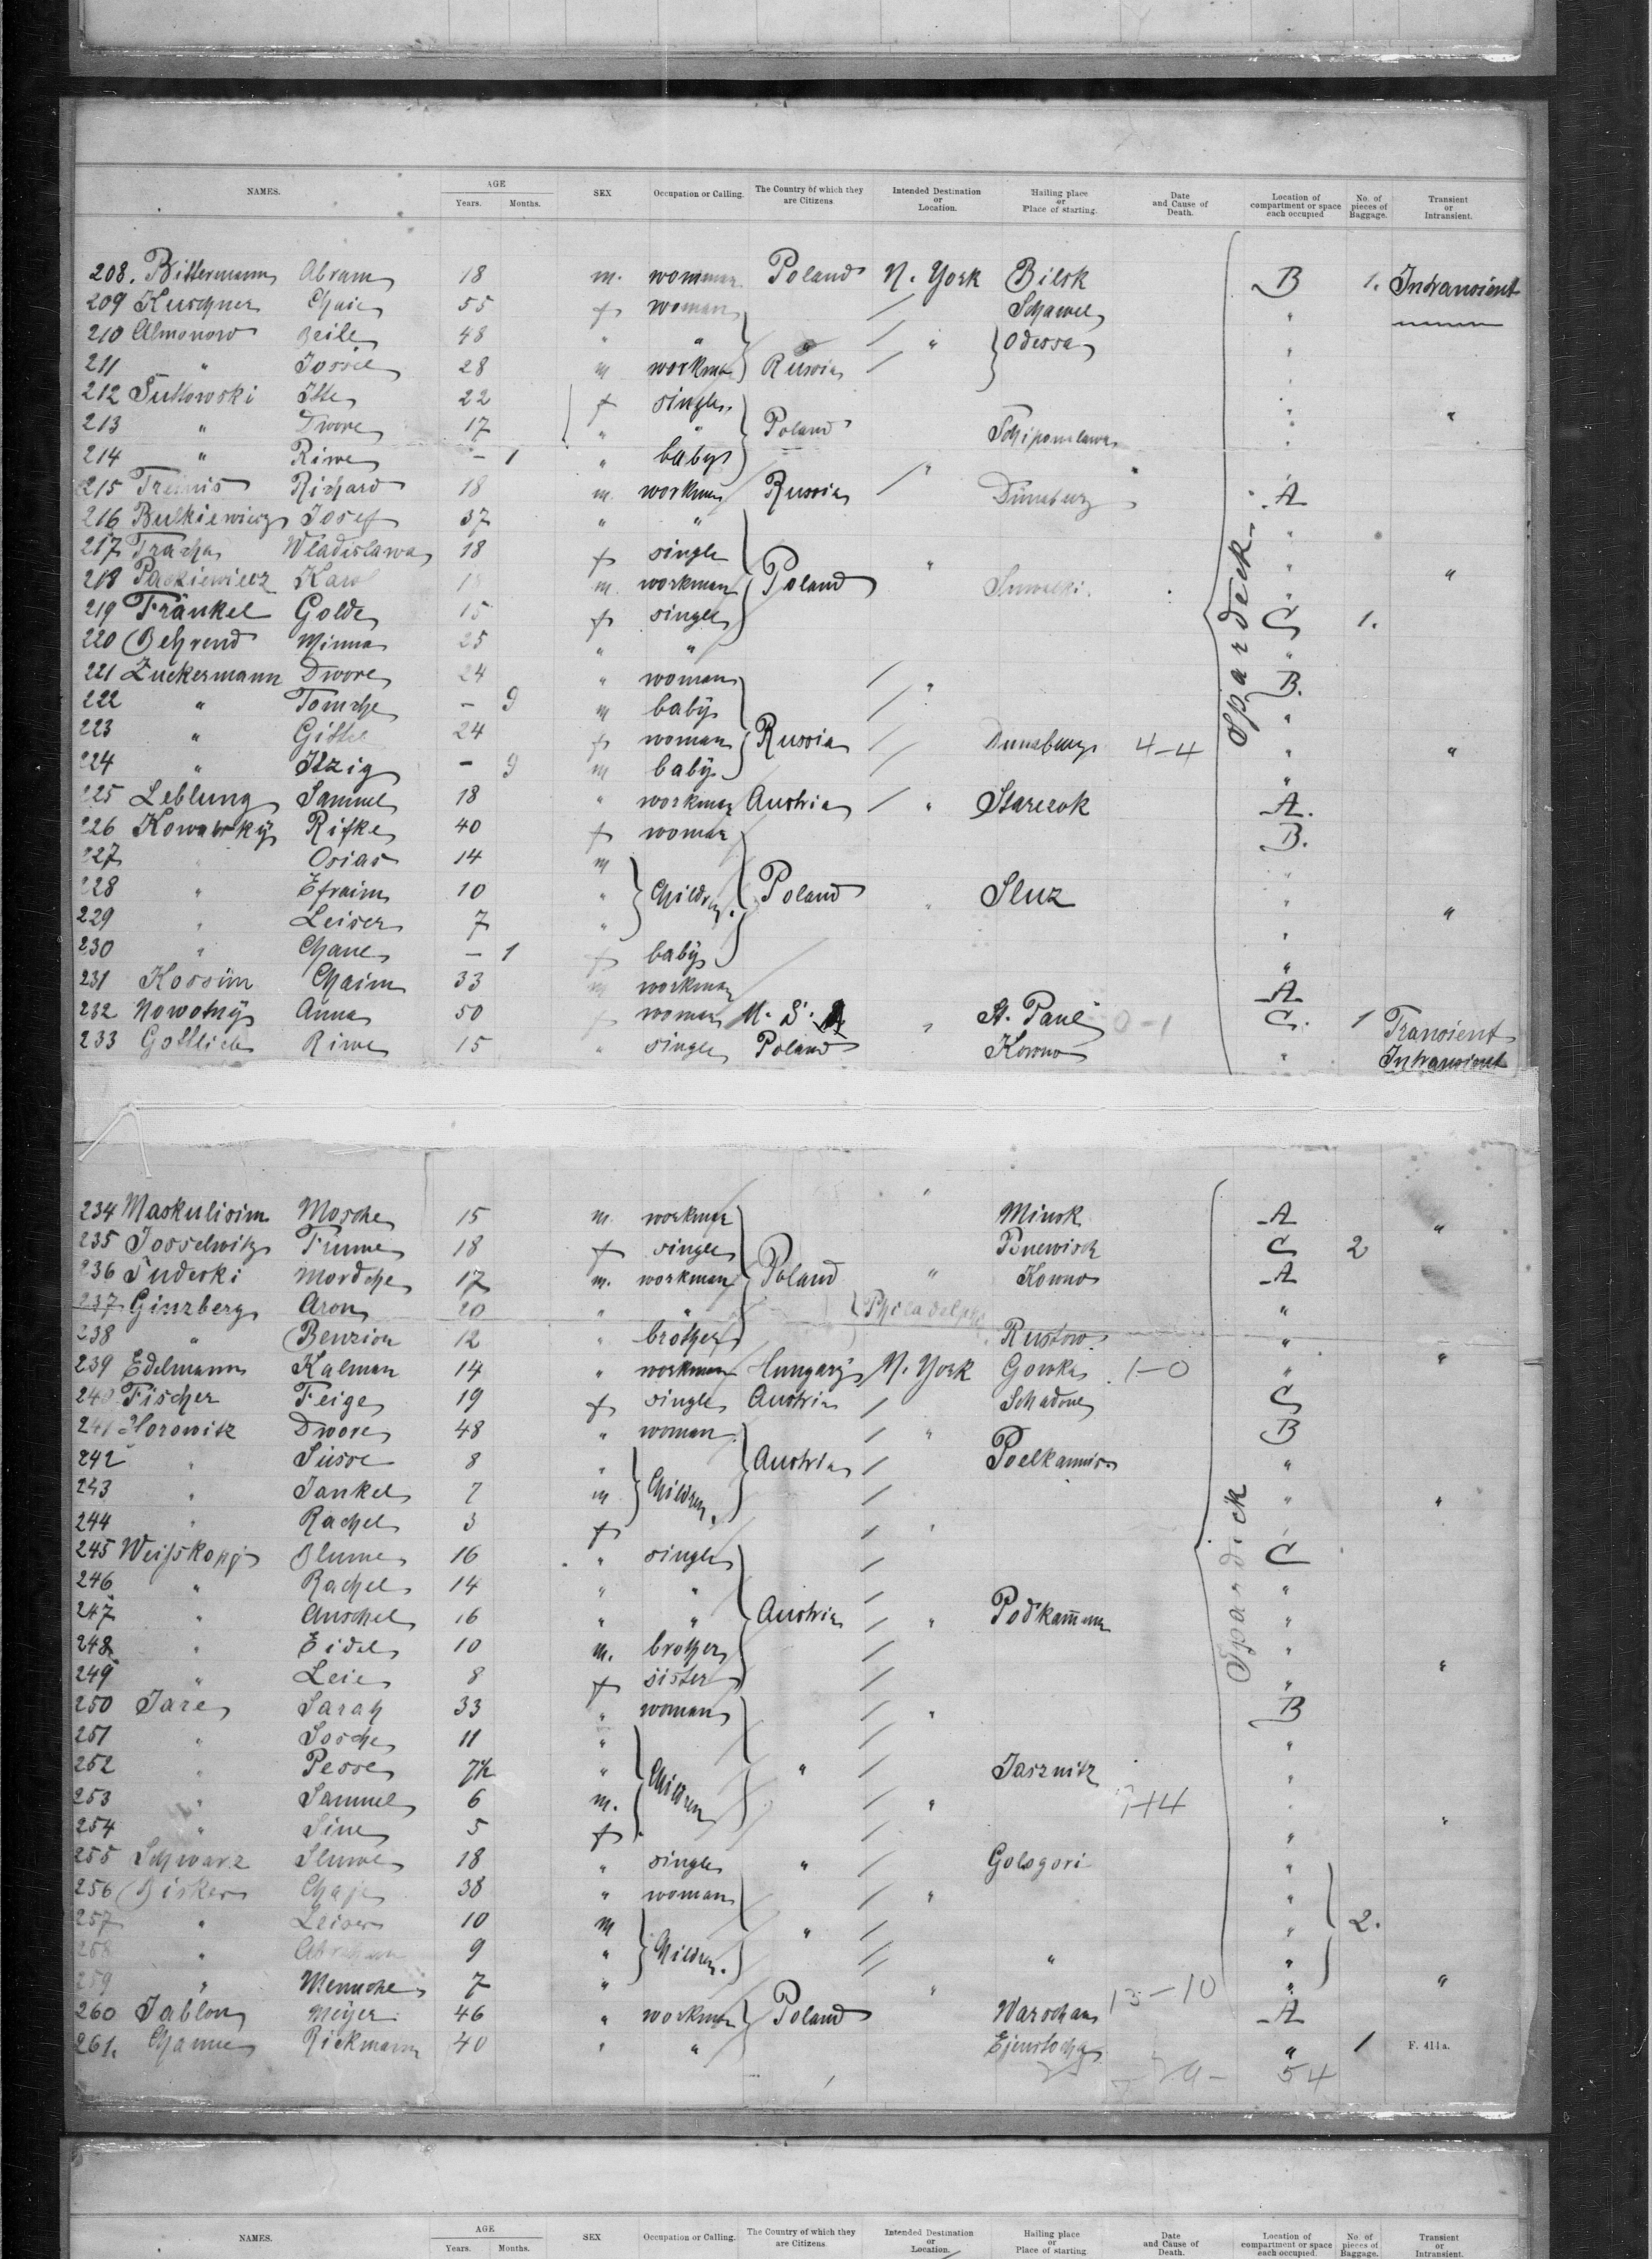 NAMES. AGE Years. Months. SEX Occupation or Calling. The Country of which they are Citizens. Intended Destination or Location. Hailing place or Place of starting. Date and Cause of Death. Location of compartment or space each occupied No. of pieces of Baggage. Transient or Intransient.
208. Bittermann Abram 18 m. Poland N. York Bilsk B 1. Intransient
209 Kuschner Chaie 55 f woman / Schawel "
210 Almonow Beile 48 " " " / " Odessa "
211 " Jossel 28 m workman Russia /
212 Sutkowski Itte 22 f single "
213 " Dwore 17 " " Poland "
214 " Riwe - 1 " baby "
215 Richard 18 m. workman Russia / Dünaburg A
216 Butkiewicz Josef 37 " " "
217 Tracha Wladislawa 18 f single " "
218 Packiewicz Karol 18 m. workman Poland Suwalki. " "
219 Fränkel Golde 15 f single C 1.
220 Behrend Minna 25 " " "
221 Zuckermann Dwore 24 " woman / " B.
222 " - 9 m baby / "
223 " Gittel 24 f woman Russia / Dunaburg 4-4 " "
224 " Itzig - 9 m baby / "
225 Leblung Samuel 18 " workman Austria / " Starezok A.
226 Kowalsky Rifke 40 f woman B.
227 " Osias 14 m "
228 " Efraim 10 " Children. Poland " Sluz "
229 " Leiser 7 " " "
230 " Chane - 1 f baby "
231 Kossim Chaim 33 m workman A
232 Nowotny Anna 50 f woman U. S. A " St. Paul 0-1 C. 1 Transient
233 Gottlieb Riwe 15 " single Poland Kowno " Intransient
Spardeck
234 Maskulisim Mosche 15 m. workman " Minsk A "
235 Josselwitz Frume 18 f single Ponewisch C 2
236 Sudeski Mordche 17 m. workman Poland " Kowno A
237 Ginzberg Aron 20 " " Philadelphia "
238 " Benzion 12 " brother Rustow. "
239 Edelmann Kalman 14 " workman Hungary N. York Gowka 1-0 " "
240 Fischer Feige 19 f single Austria / Schadow C
241 Horowitz Dwore 48 " woman / " B
242 " Süsse 8 " Austria / "
243 " Jankel 7 m Children. / " "
244 " Rachel 3 f / "
245 Weisskopf Blume 16 " single / C
246 " Rachel 14 " " / "
247 " Anschel 16 " " Austria / " Podkamen "
248 " Eidel 10 m. brother / "
249 " Leie 8 f sister / " "
250 Jare Sarah 33 " woman / " B
251 " Sosche 11 " / "
252 " Pesse 7½ " Children " / Jasznitz "
253 " Samuel 6 m. / " "
254 " Sine 5 f / " "
255 Schwarz Slume 18 " single " / Gologori "
256 Bisker Chaje 38 " woman / " "
257 " Leiser 10 m " / " 2.
258 " Abraham 9 " Children. / " "
259 " Menuche 7 " " 13-10 " "
260 Jablon Meyer 46 " workman Poland Warschau A
261. Channe Rickmann 40 " " " 1 F. 411a.
Spardeck
54
NAMES. AGE Years. Months. SEX Occupation or Calling. The Country of which they are Citizens Intended Destination or Location. Hailing place or Place of starting Date and Cause of Death. Location of compartment or space each occupied. No. of pieces of Baggage. Transient or Intransient.